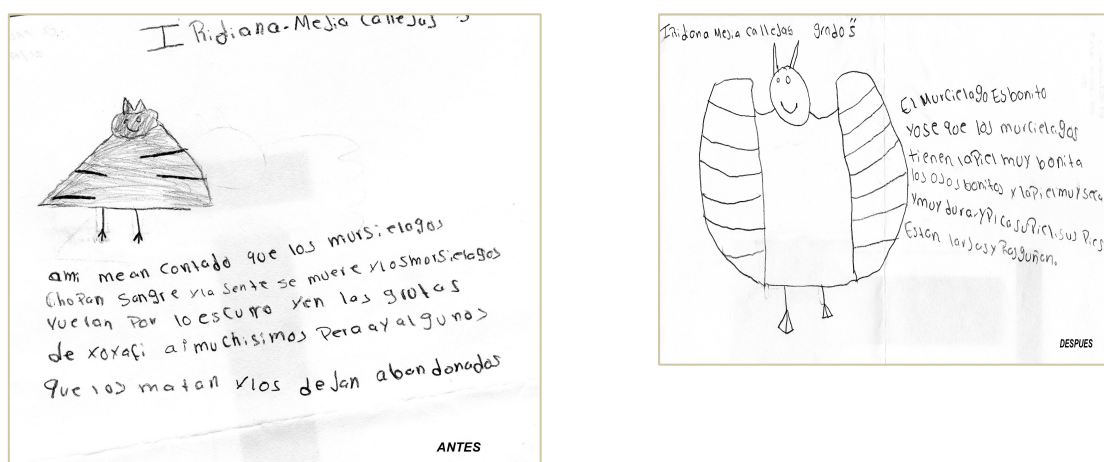 IRidiana-Mejia Callejas
ami mean contado que los mursielagos
Chopan Sangre yla Sente se muere ylosmorsielagos
vuelan Por loescurro yen las grutas
de xoxafi aimuchisimos Peraay algunos
que los matan ylos dejan abandonados
ANTES
IRidana Mejia callejas grado
El Murcielago Esbonito
yose que los murcielagos
tienen laPiel muy bonita
los ojos bonitos y laPielmuy
ymuy dura.yPicasuPiel.sus Pies
Estan larjas y Rasguñan.
DESPUES